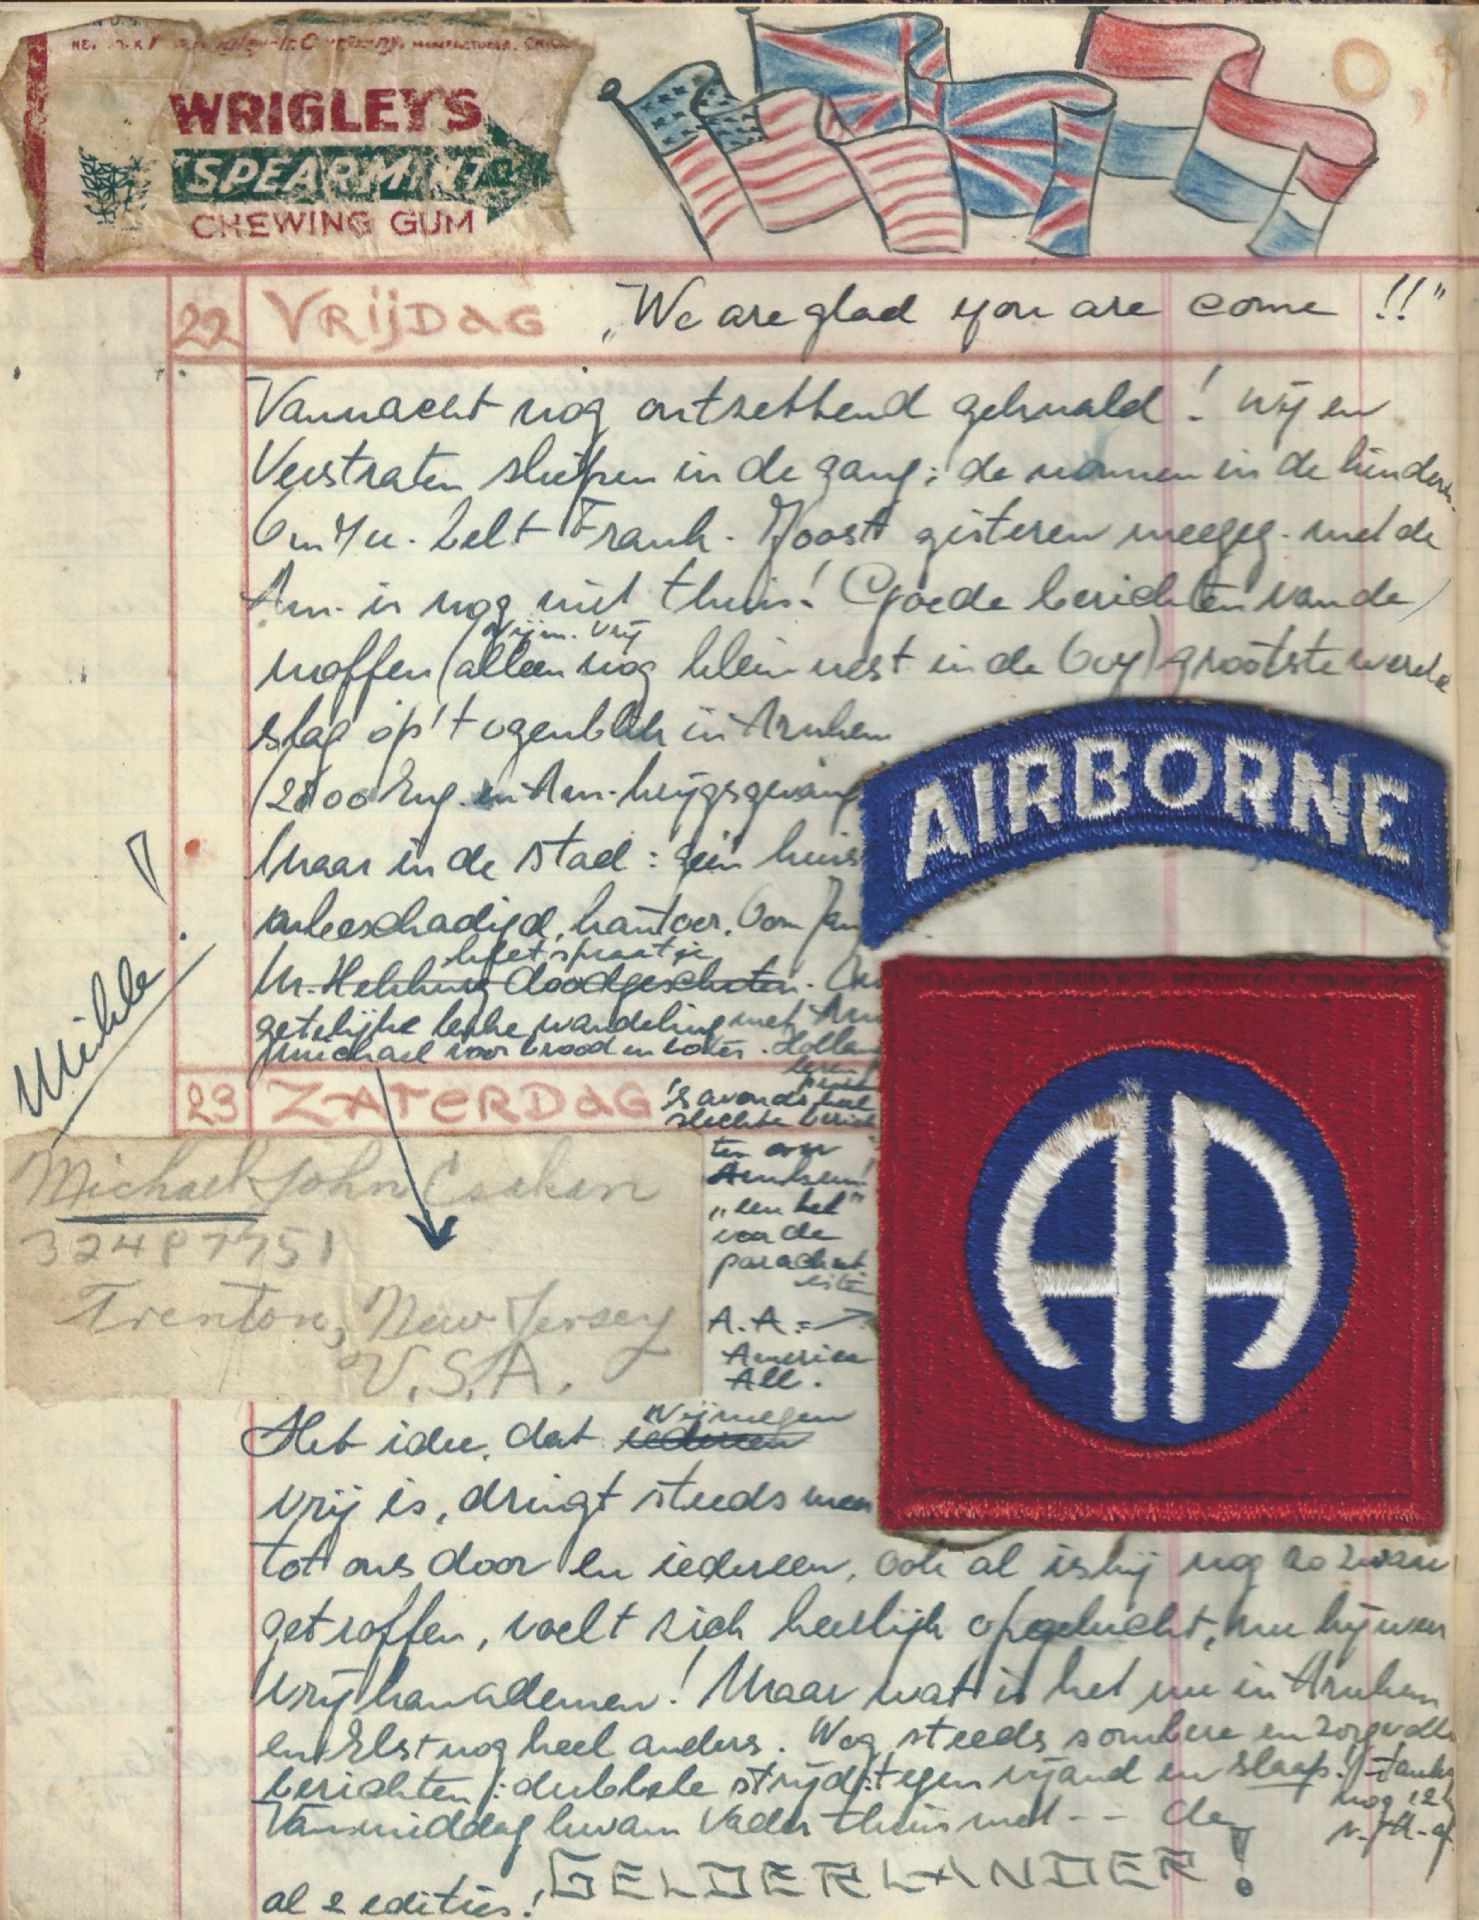 WRIGLEY'S
SPEARMINT
CHEWING GUM
22 VRIJDAG „We are glad you are come!!"
Vannacht nog ontzettend geknald! Wij en
Verstraten sliepen in de gang; de nonnen in de kinderk.
Om 7 u. belt Frank. Joost gisteren meegeg. met de
Am. is nog niet thuis! Goede berichten van de
Nijm. vrij
moffen (alleen nog klein nest in de Ooy) grootste wereld
slag op 't ogenblik in Arnhem
(2800 Eng. en Am. krijgsgevang
Maar in de stad: géén huis
onbeschadigd, kantoor, Oom Jan
heet praatje
Mr. Hekking doodgeschoten.
getelijke leuke wandeling met Am
Michael voor brood en boter. Hollan
Mikke!
AIRBORNE
23 ZATERDAG 's avonds heel
slechte berich
ten over
Arnhem!
„een hel"
voor de
parachut
isten
Michael John
32487751
Trenton, New Jersey
U.S.A.
A.A. =
America
All.
AA
Nijmegen
Het idee, dat iedereen
vrij is, dringt steeds meer
tot ons door en iedereen, ook al is hij nog zo zwaar
getroffen, voelt zich heerlijk opgelucht, nu hij weer
vrij kan ademen! Maar wat is het nu in Arnhem
en Elst nog heel anders. Nog steeds sombere en zorgvolle
berichten: dubbele strijd: tegen vijand en slaap! tanks
nog 12 k
v. A. af
Vanmiddag kwam Vader thuis met -- de
al 2 edities! GELDERLANDER!